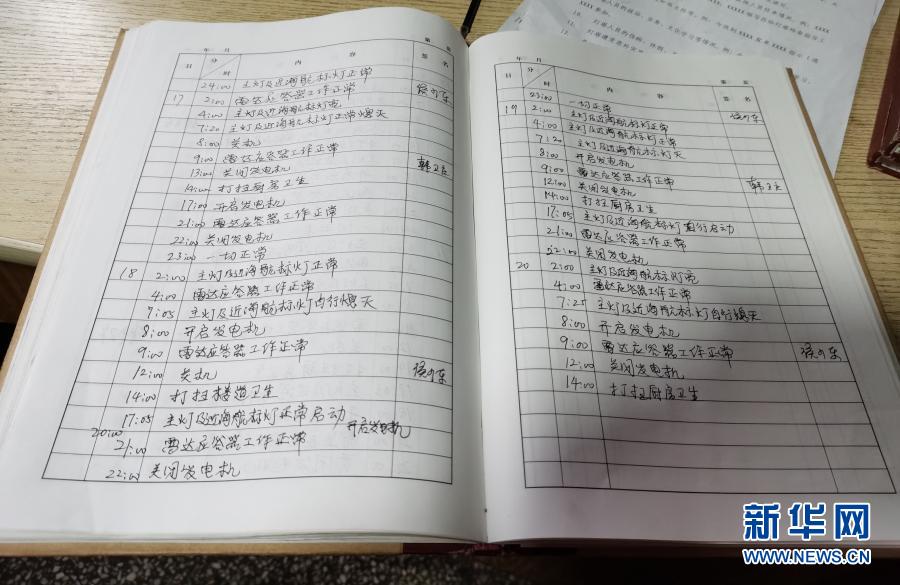 年 月 第 页
日 分 时 内 容 签 名
24:00 主灯及近海航标灯正常
17 2:00 雷达应答器工作正常
4:00 主灯及近海航标灯亮
7:20 主灯及近海航标灯正常熄灭
8:00 关机
9:00 雷达应答器工作正常
13:00 关闭发电机
14:00 打扫厨房卫生
17:00 开启发电机
21:00 雷达应答器工作正常
22:00 关闭发电机
23:00 一切正常
18 2:00 主灯及近海航标灯正常
4:00 雷达应答器工作正常
7:05 主灯及近海航标灯自行熄灭
8:00 开启发电机
9:00 雷达应答器工作正常
12:00 关机
14:00 打扫楼道卫生
17:05 主灯及近海航标灯正常启动
20:00 开启发电机
21:00 雷达应答器工作正常
22:00 关闭发电机
年 月 第 页
日 分 时 内 容 签 名
23:00 一切正常
19 2:00 主灯及近海航标灯正常
4:00 主灯及近海航标灯正常
7:20 主灯及近海航标灯灭
8:00 开启发电机
9:00 雷达应答器工作正常
12:00 关闭发电机
14:00 打扫厨房卫生
17:05 主灯及近海航标灯自行启动
21:00 雷达应答器工作正常
22:00 关闭发电机
20 2:00 主灯及近海航标灯亮
4:00 雷达应答器工作正常
7:25 主灯及近海航标灯自行熄灭
8:00 开启发电机
9:00 雷达应答器工作正常
12:00 关闭发电机
14:00 打扫厨房卫生
新华网
WWW.NEWS.CN